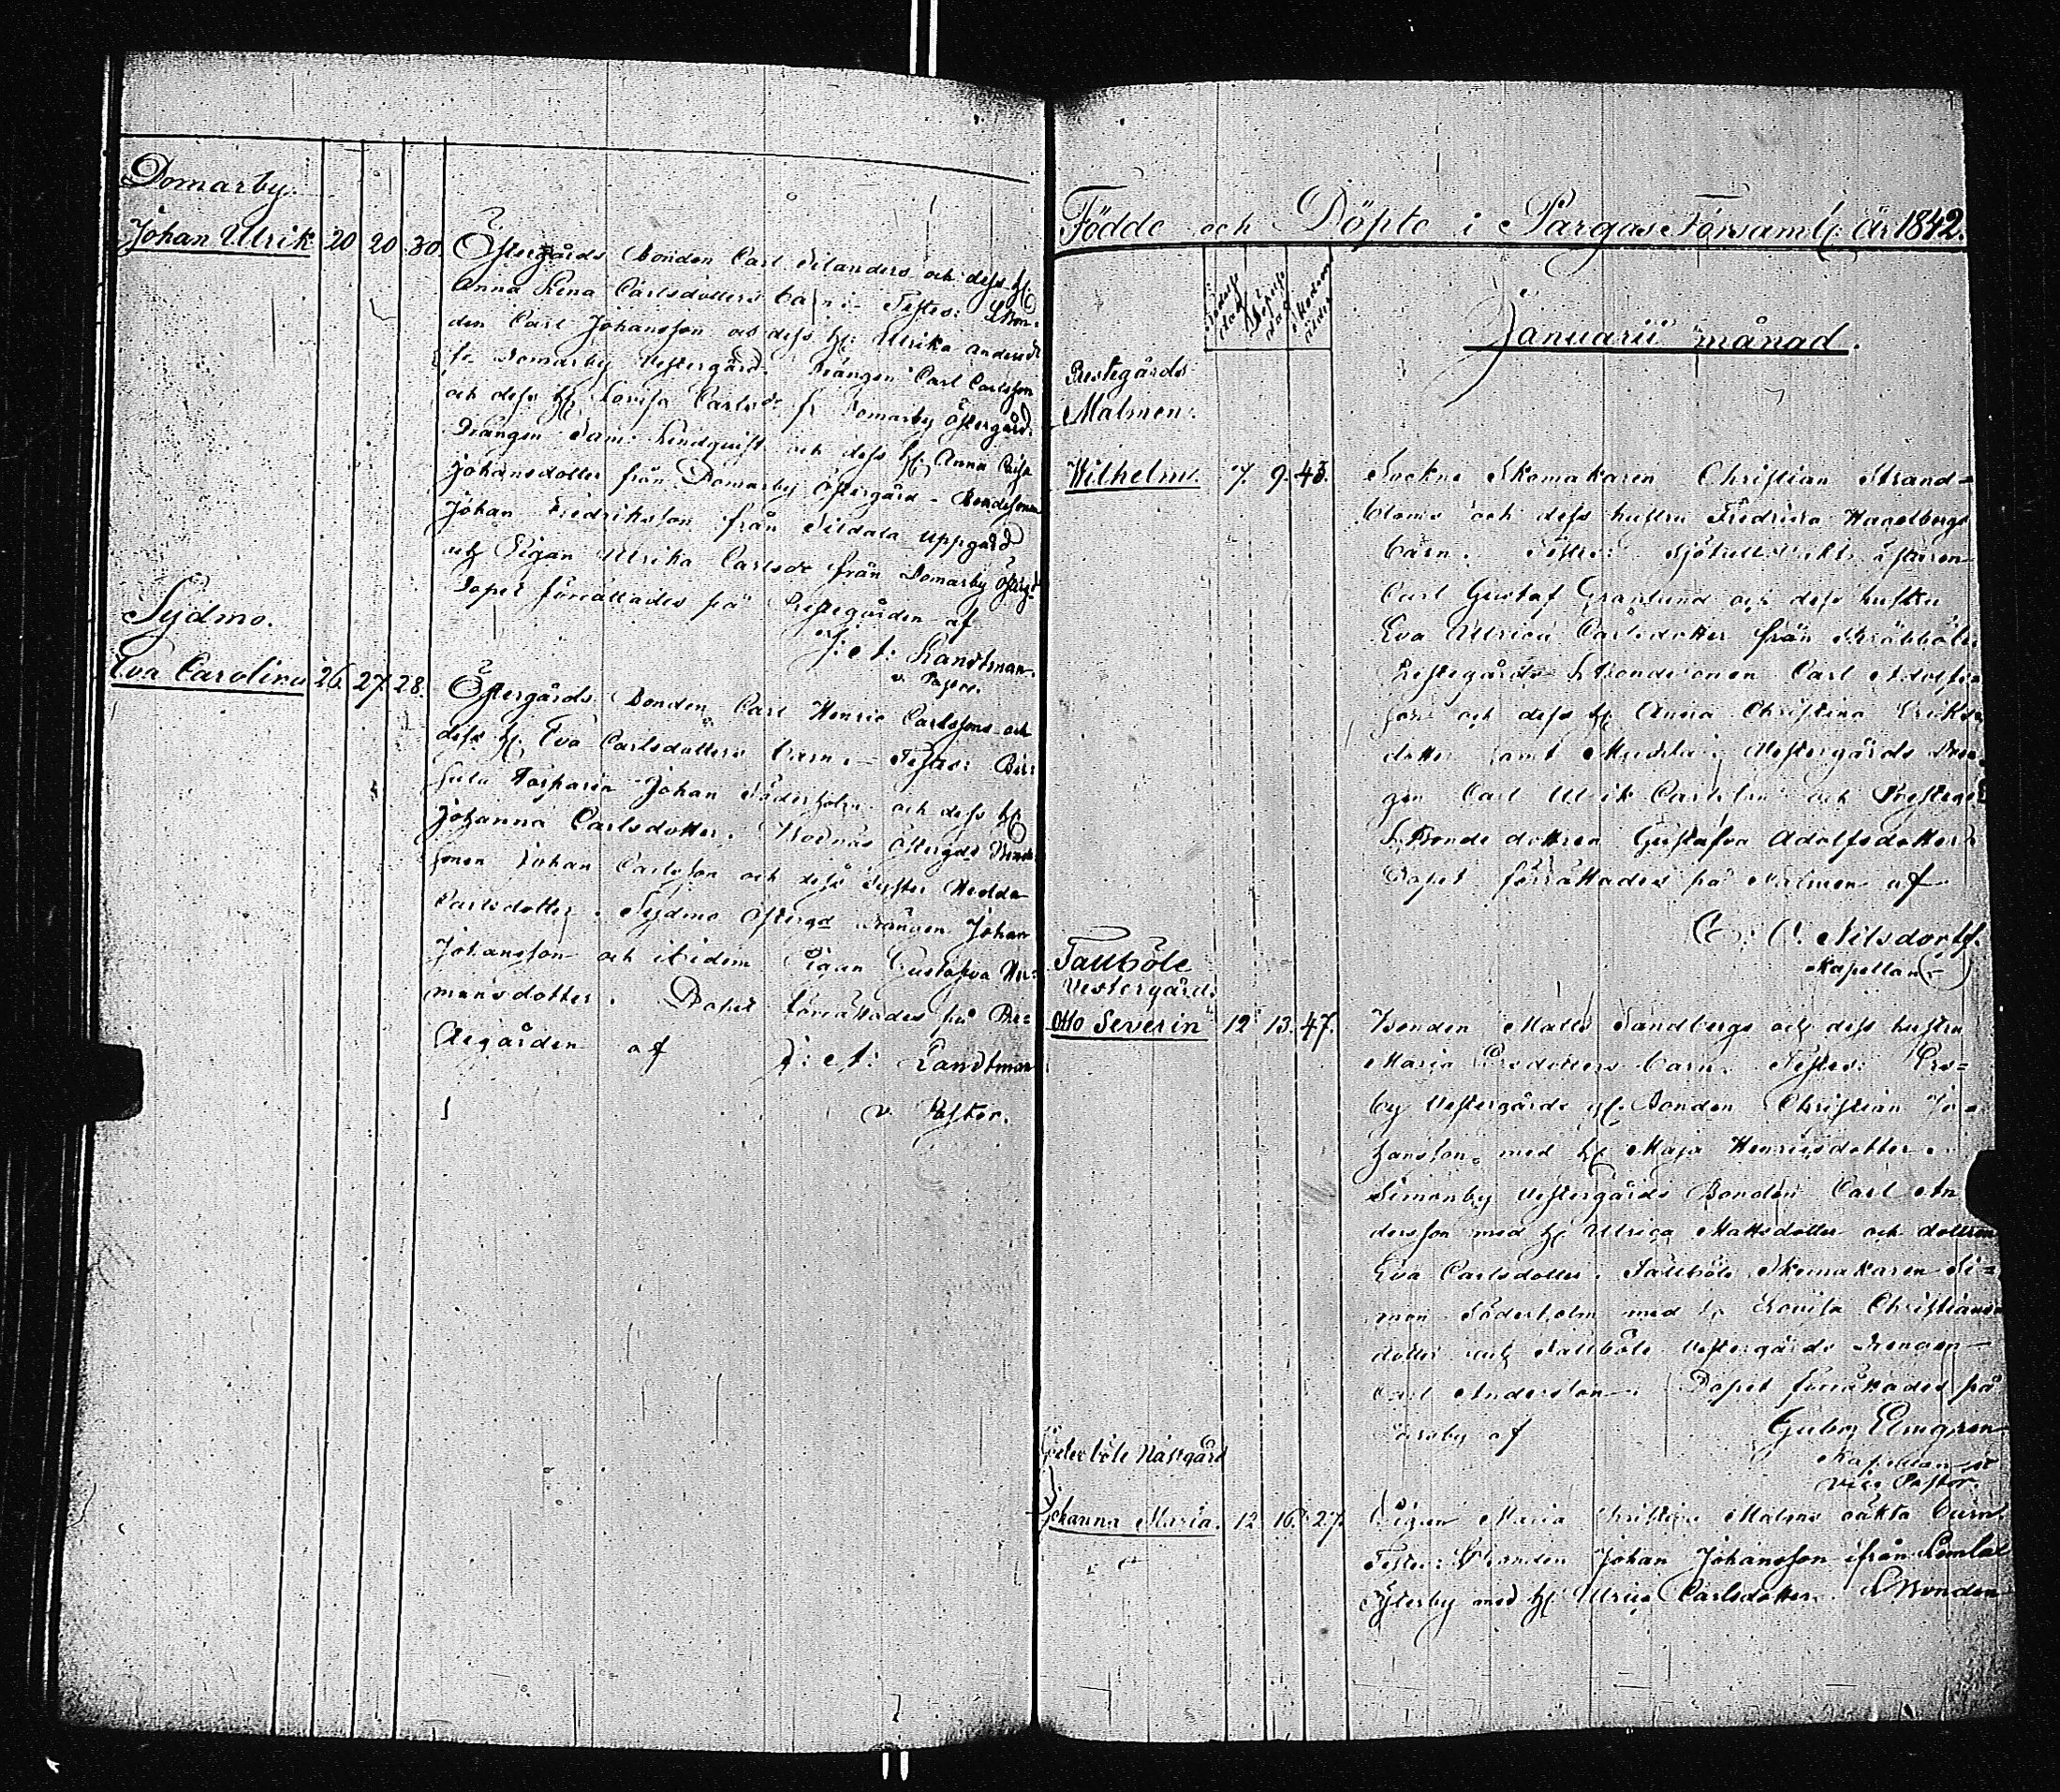 Domarby.
Johan Ulrik 20 20 30. Östergårds Bonden Carl Silanders och dess h:
Anna Lena Carlsdotters barn. Testes: LBon-
den Carl Johansson och dess h: Ulrika Andersd:
fr. Domarby Vestergård. Drängen Carl Carlsson
och dess h: Lovisa Carlsdr fr Domarby Östergård.
Drängen Sam: Lindquist och dess h: Anna
Johansdotter från Domarby Östergård - Bondesonen
Johan Fredriksson från Sildala Uppgård
och Pigan Ulrika Carlsdr från Domarby Östergd
Dopet förrättades på Prestegården af
J: A: Sandtman
v. Pastor.
Sydmo.
Eva Carolina 26. 27. 28. Östergårds Bonden Carl Henric Carlssons och
dess h: Eva Carlsdotters barn. Testes:
Johan Söderholm och dess h:
Johanna Carlsdotter. Östergds Bonde
sonen Johan Carlsson och dess syster Hedda
Carlsdotter. Sydmo Östergd Drängen Johan
Johansson och ibidem Pigan Gustafva Her-
mansdotter. Dopet förrättades på Pre-
stegården af J: A: Sandtman
v. Pastor.
Födde och Döpte i Pargas Församl: år 1842.
Januarii månad.
Prestegårds
Malmen.
Wilhelm. 7. 9. 43. Sockne Skomakaren Christian Strand-
bloms och dess hustru Fredrica Hagelbergs
barn. Testes:
Carl Gustaf Granlund och dess hustru
Eva Ulrica Carlsdotter från Skräbböle.
Prestegårds LBondesonen Carl Adolfs-
son och dess h: Anna Christina Eriks-
dotter samt Vestergårds Drän-
gen Carl Ulrik Carlsson och Prestegds
LBondedottren Gustafva Adolfsdotter.
Dopet förrättades på Malmen af
Nilsdorff.
Kapellan
Tallböle
Vestergård.
Otto Severin 12 13. 47. Bonden Matts Sandbergs och dess hustru
Maria barn. Testes: Ers-
by Vestergårds Bonden Christian Jo-
hansson med h: Maja Henricsdotter.
Simonby Vestergårds Bonden Carl An
dersson med h: Ulrica Mattsdotter och dottren
Eva Carlsdotter. Tallböle Skomakaren Si-
mon Söderholm med h: Lovisa Christians
dotter och Tallböle Vestergårds Drengen
Carl Andersson. Dopet förrättades på
af Elmgren
Kapellan
Vice Pastor.
Nästgård
Johanna Maria. 12 16. 27. Pigan Maria Christina Malms oäkta barn.
Testes: Johan Johansson ifrån
Österby med h: Ulrica Carlsdotter. LBonden